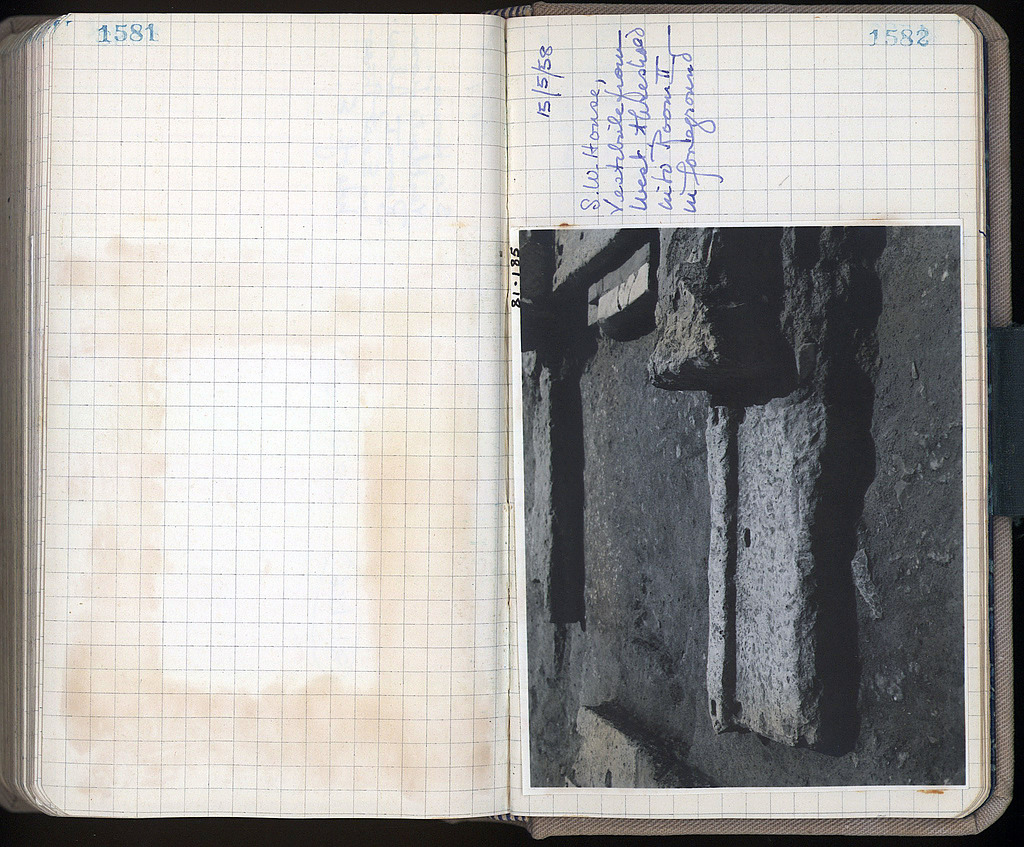 1581
1582
15/5/58
S.W. House,
Vestibule from
West, threshold
into Room II
in foreground
81.185